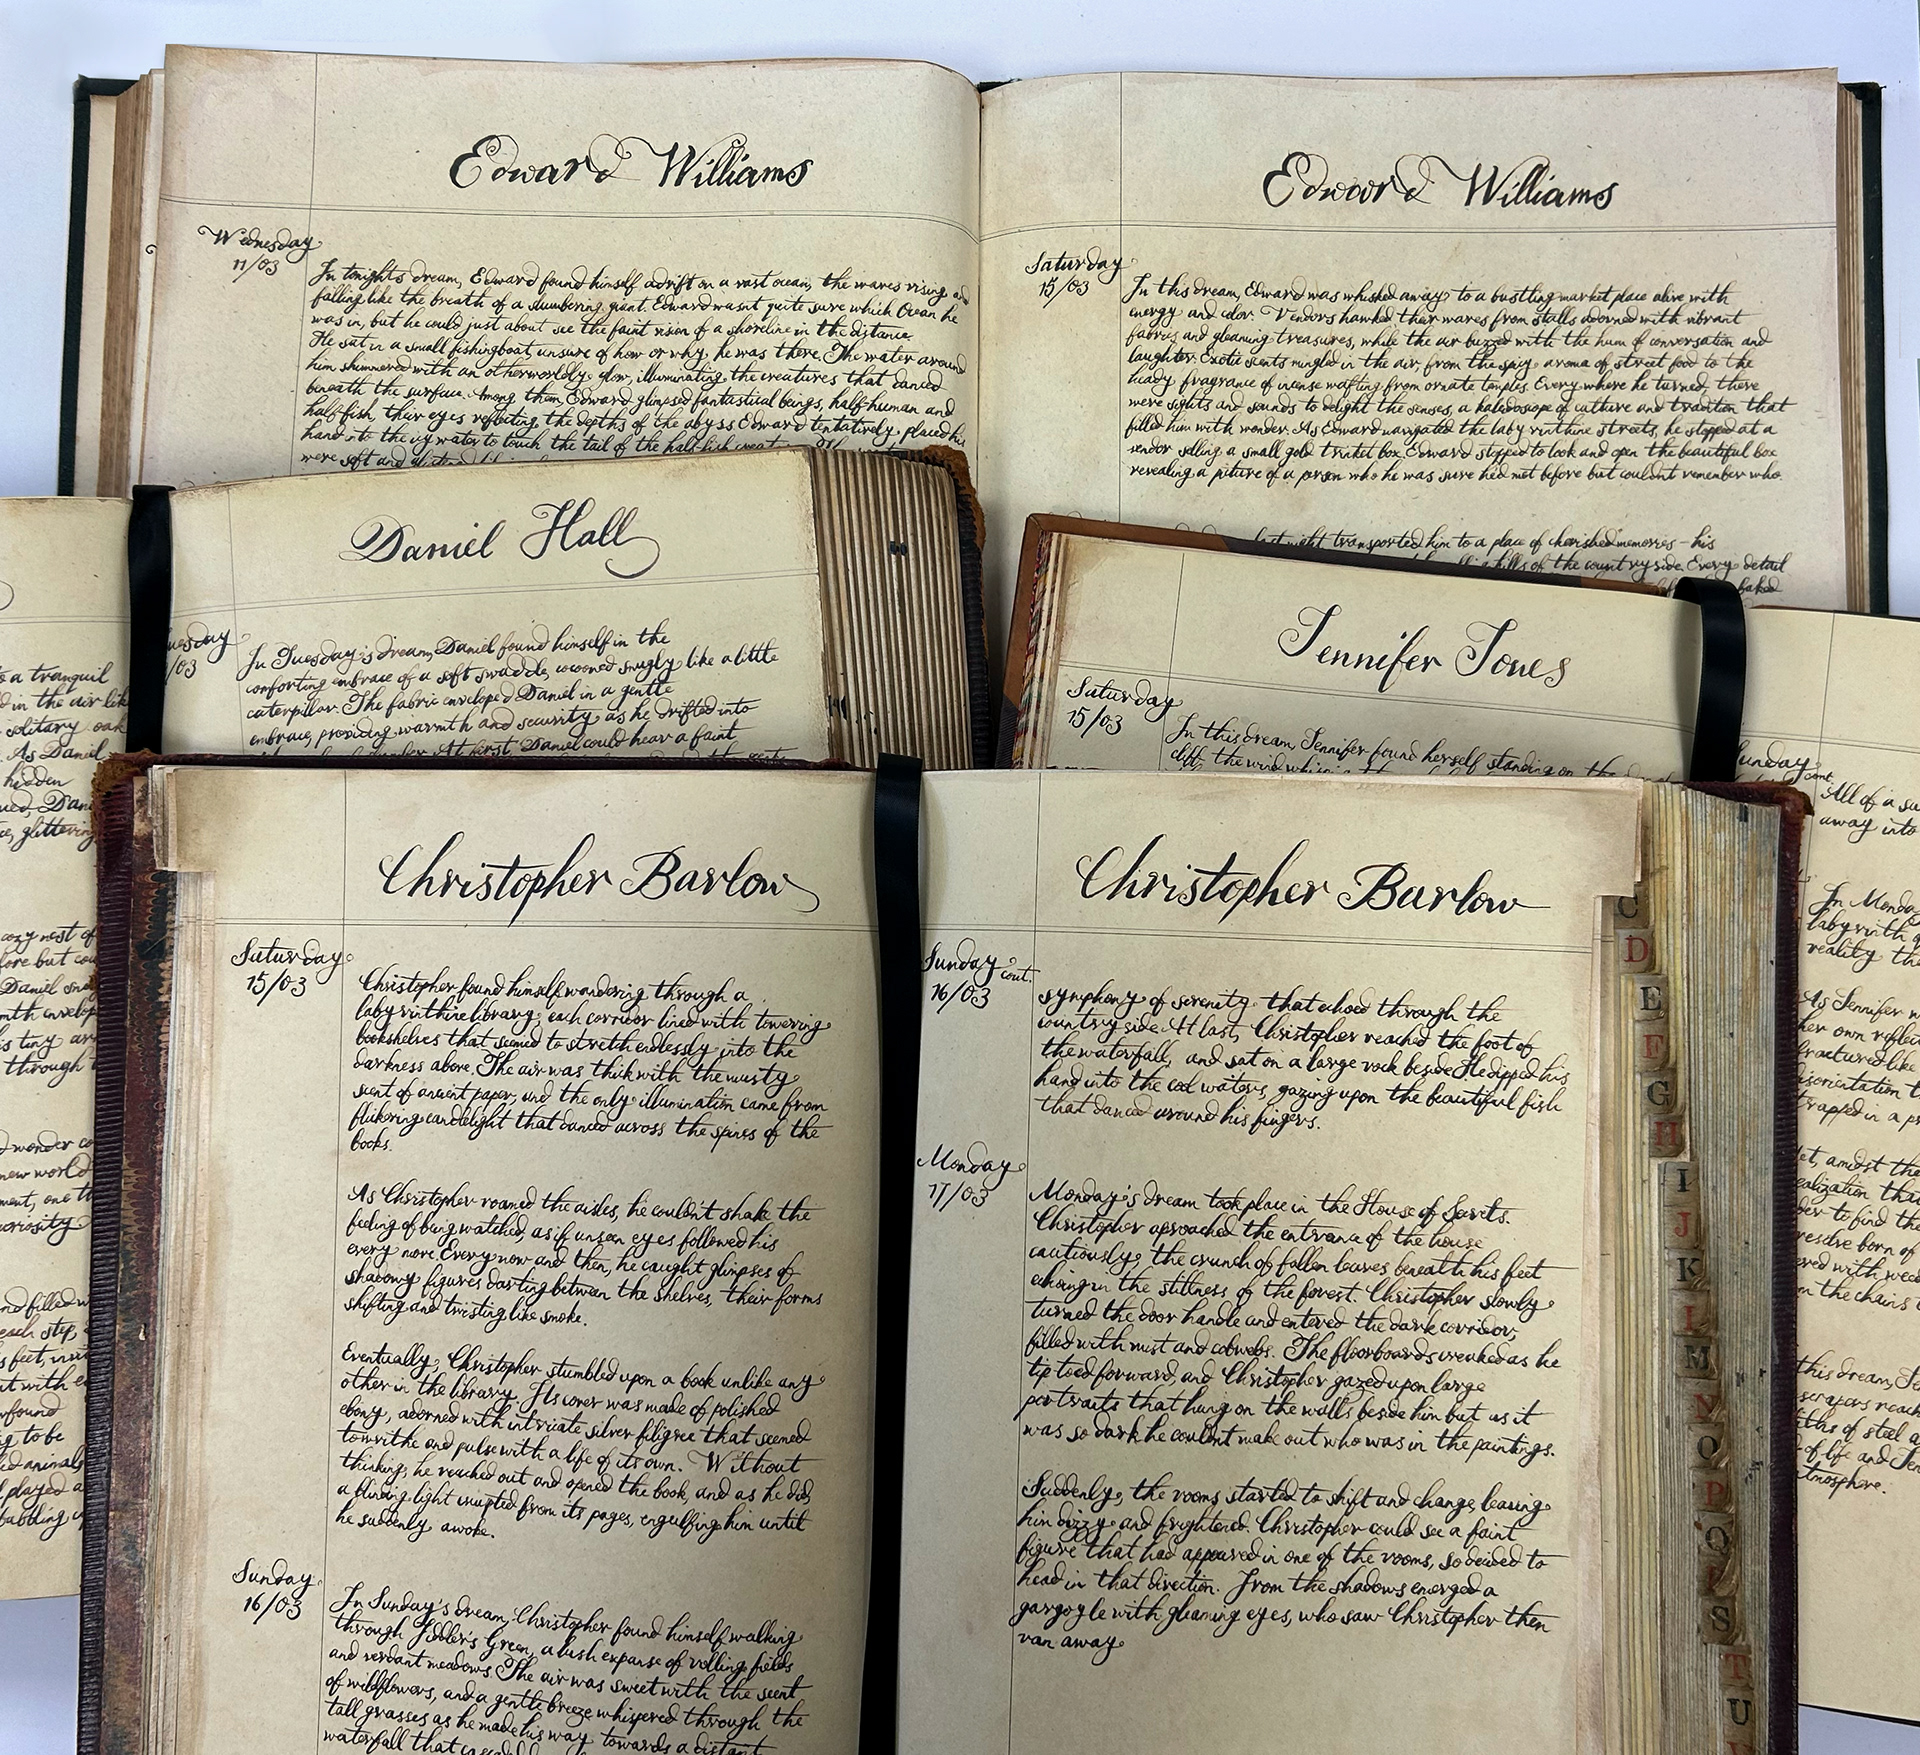 Edward Williams
Wednesday
11/03
In tonights dream, Edward found himself adrift on a vast ocean, the waves rising and
falling like the breath of a slumbering giant. Edward wasnt quite sure which Ocean he
was in, but he could just about see the faint vision of a shoreline in the distance.
He sat in a small fishingboat, unsure of how or why he was there. The water around
him shimmered with an otherworldly glow, illuminating the creatures that danced
beneath the surface. Among them, Edward glimpsed fantastical beings, half human and
half fish, their eyes reflecting the depths of the abyss Edward tentatively placed his
hand into the icy water to touch the tail of the half fish
were soft and
Edward Williams
Saturday
15/03
In this dream, Edward was whisked away to a bustling market place alive with
energy and color. Vendors hawked their wares from stalls adorned with vibrant
fabrics and gleaming treasures, while the air buzzed with the hum of conversation and
laughter. Exotic scents mingled in the air, from the spicy aroma of street food to the
heady fragrance of incense wafting from ornate temples. Every where he turned, there
were sights and sounds to delight the senses, a kaleidoscope of culture and tradition that
filled him with wonder. As Edward navigated the laby rinthine streets, he stopped at a
vendor selling a small gold trinket box. Edward stopped to look and open the beautiful box
revealing a picture of a person who he was sure he'd met before but couldnt remember who.
last night transported him to a place of cherished memories - his
hills of the country side. Every detail
baked
Daniel Hall
uesday
/03
In Tuesday's dream, Daniel found himself in the
comforting embrace of a soft swaddle, cocooned snugly like a little
caterpillar. The fabric enveloped Daniel in a gentle
embrace, providing warmth and security as he drifted into
At first Daniel could hear a faint
Jennifer Jones
Saturday
15/03
In this dream, Jennifer found herself standing on the
cliff, the wind
to a tranquil
d in the air like
solitary oak
. As Daniel
hidden
ued, Dani
ce, glittering
cozy nest of
fore but cou
Daniel snu
mth envelop
is tiny arm
through t
d wonder co
new world
ment, one th
curiosity
nd filled w
each step,
s feet, invit
ut with e
wfound
g to be
ied animals
played a
babbling
Christopher Barlow
Saturday
15/03
Christopher found himself wandering through a
laby rinthine library, each corridor lined with towering
bookshelves that seemed to stretch endlessly into the
darkness above. The air was thick with the musty
scent of ancient paper, and the only illumination came from
flickering candlelight that danced across the spines of the
books.
As Christopher roamed the aisles, he couldn't shake the
feeling of being watched, as if unseen eyes followed his
every move. Every now and then, he caught glimpses of
shadowy figures darting between the shelves, their forms
shifting and twisting like smoke.
Eventually, Christopher stumbled upon a book unlike any
other in the library. Its cover was made of polished
ebony, adorned with intricate silver filigree that seemed
to writhe and pulse with a life of its own. Without
thinking, he reached out and opened the book, and as he did,
a blinding light erupted from its pages, engulfing him until
he suddenly awoke.
Sunday
16/03
In Sunday's dream, Christopher found himself walking
through Fiddler's Green, a lush expanse of rolling fields
and verdant meadows. The air was sweet with the scent
of wildflowers, and a gentle breeze whispered through the
tall grasses as he made his way towards a distant
waterfall that cascaded
Christopher Barlow
Sunday cont.
16/03
symphony of serenity that echoed through the
country side. At last, Christopher reached the foot of
the waterfall, and sat on a large rock beside. He dipped his
hand into the cool waters, gazing upon the beautiful fish
that danced around his fingers.
Monday
17/03
Monday's dream took place in the House of Secrets.
Christopher aproached the entrance of the house
cautiously, the crunch of fallen leaves beneath his feet
echoing in the stillness of the forest. Christopher slowly
turned the door handle and entered the dark corridor,
filled with mist and cobwebs. The floorboards creaked as he
tip toed forward, and Christopher gazed upon large
portraits that hung on the walls beside him but as it
was so dark he couldnt make out who was in the paintings.
Suddenly, the rooms started to shift and change, leaving
him dizzy and frightened. Christopher could see a faint
figure that had appeared in one of the rooms, so decided to
head in that direction. From the shadows emerged a
gargoyle with gleaming eyes, who saw Christopher then
ran away.
C
D
E
F
G
H
I
J
K
L
M
N
O
P
Q
S
T
U
unday cont.
All of a su
away into
In Monday
labyrinth of
reality tha
As Jennifer w
her own reflec
fractured like
disorientation t
trapped in a p
et, amidst the
ealization that
der to find the
resolve born of
ered with
m the chains
this dream, Je
scrapers reach
iths of steel a
of life and Jen
atmosphere.